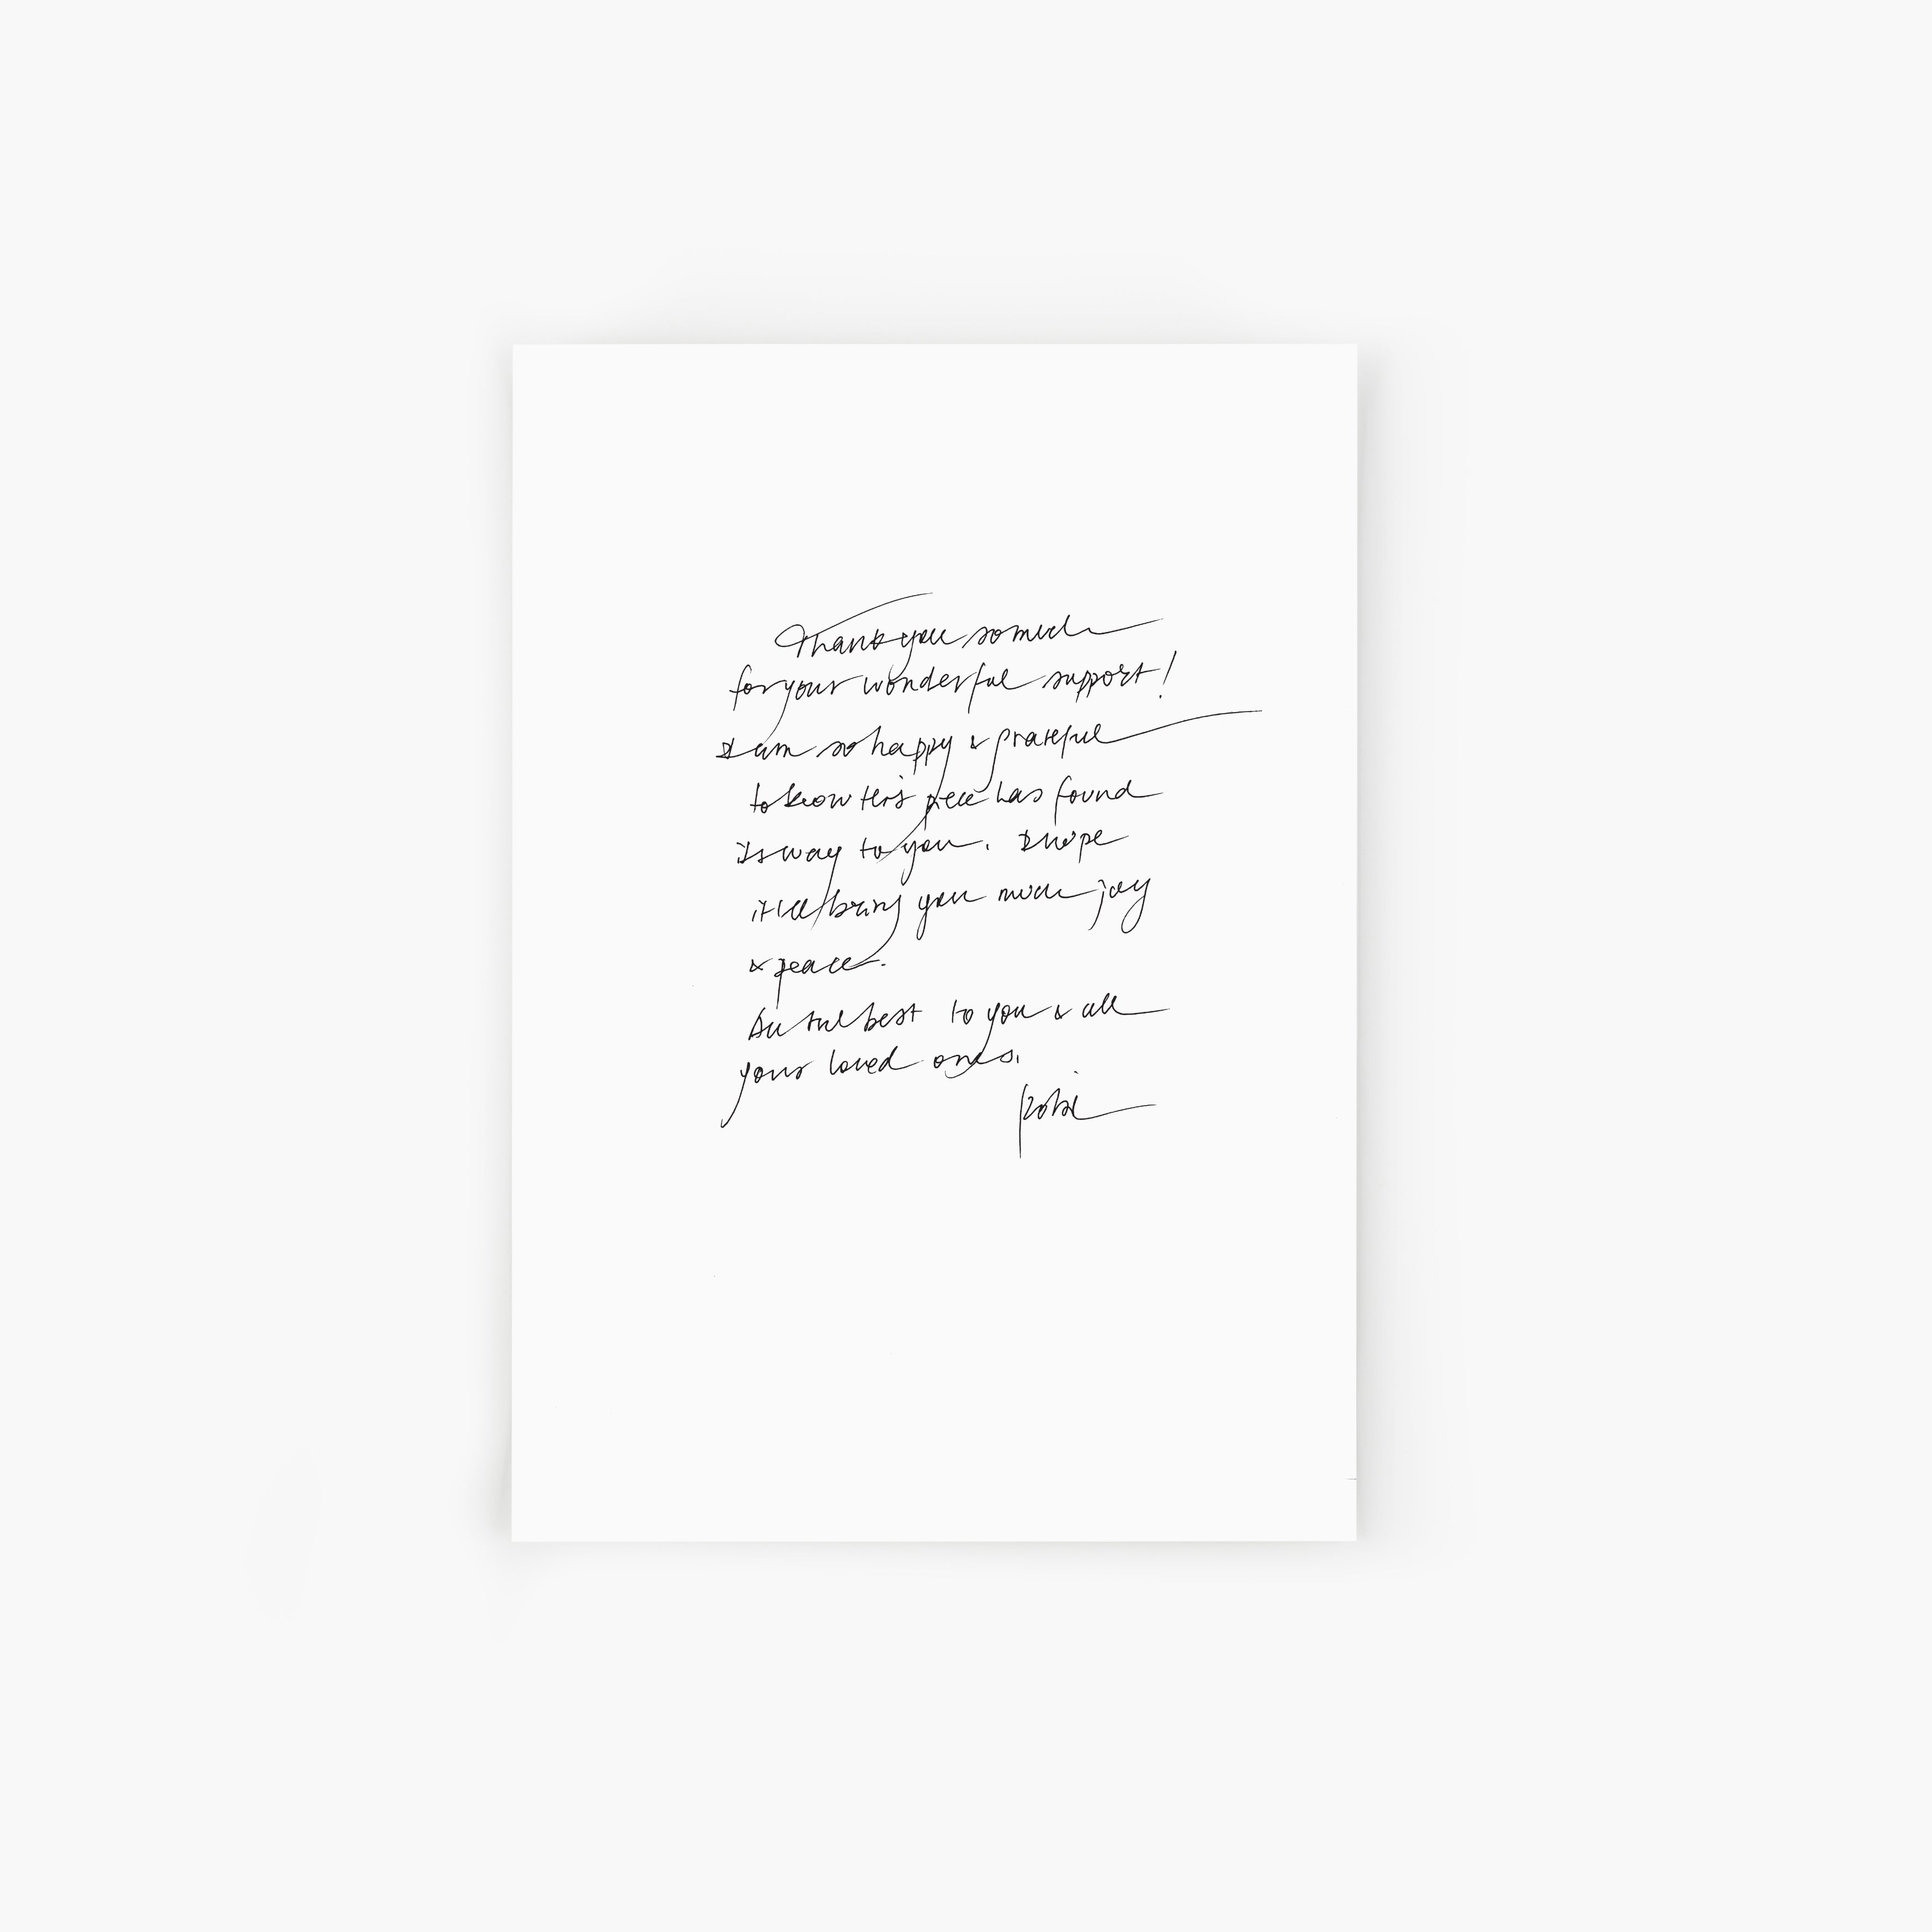 Thank you so much
for your wonderful support!
I am so happy & grateful
to know this piece has found
its way to you. I hope
it will bring you much joy
& peace.
All the best to you & all
your loved ones.